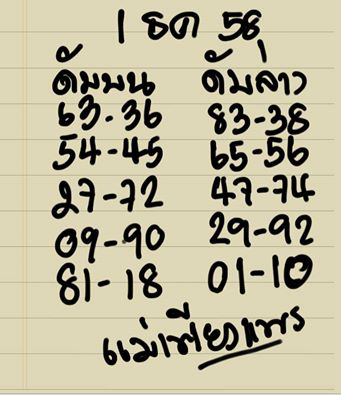 1 ธค 58
ดับบน ดับล่าว
63-36 83-38
54-45 65-56
27-72 47-74
09-90 29-92
81-18 01-10